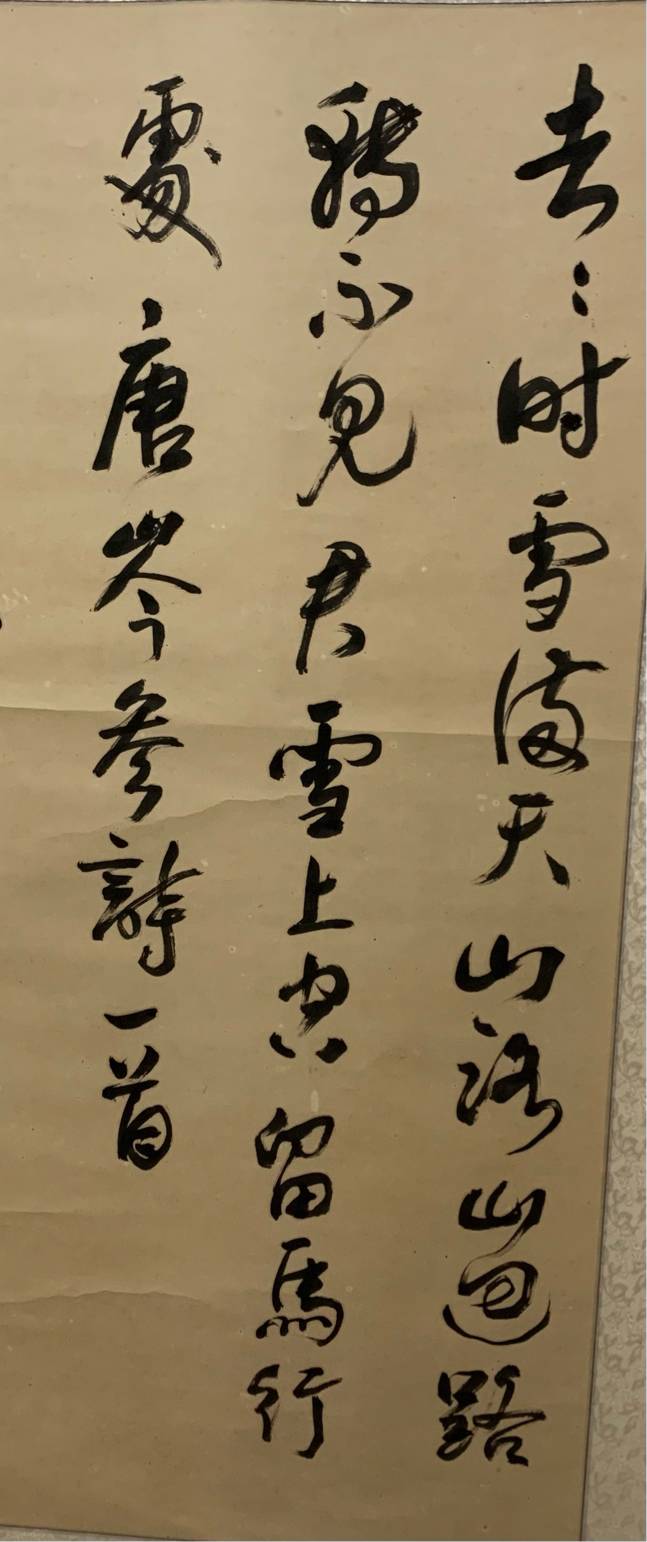 去々时雪滿天山路山迴路
轉不見君雪上空留馬行
處 唐岑參詩一首